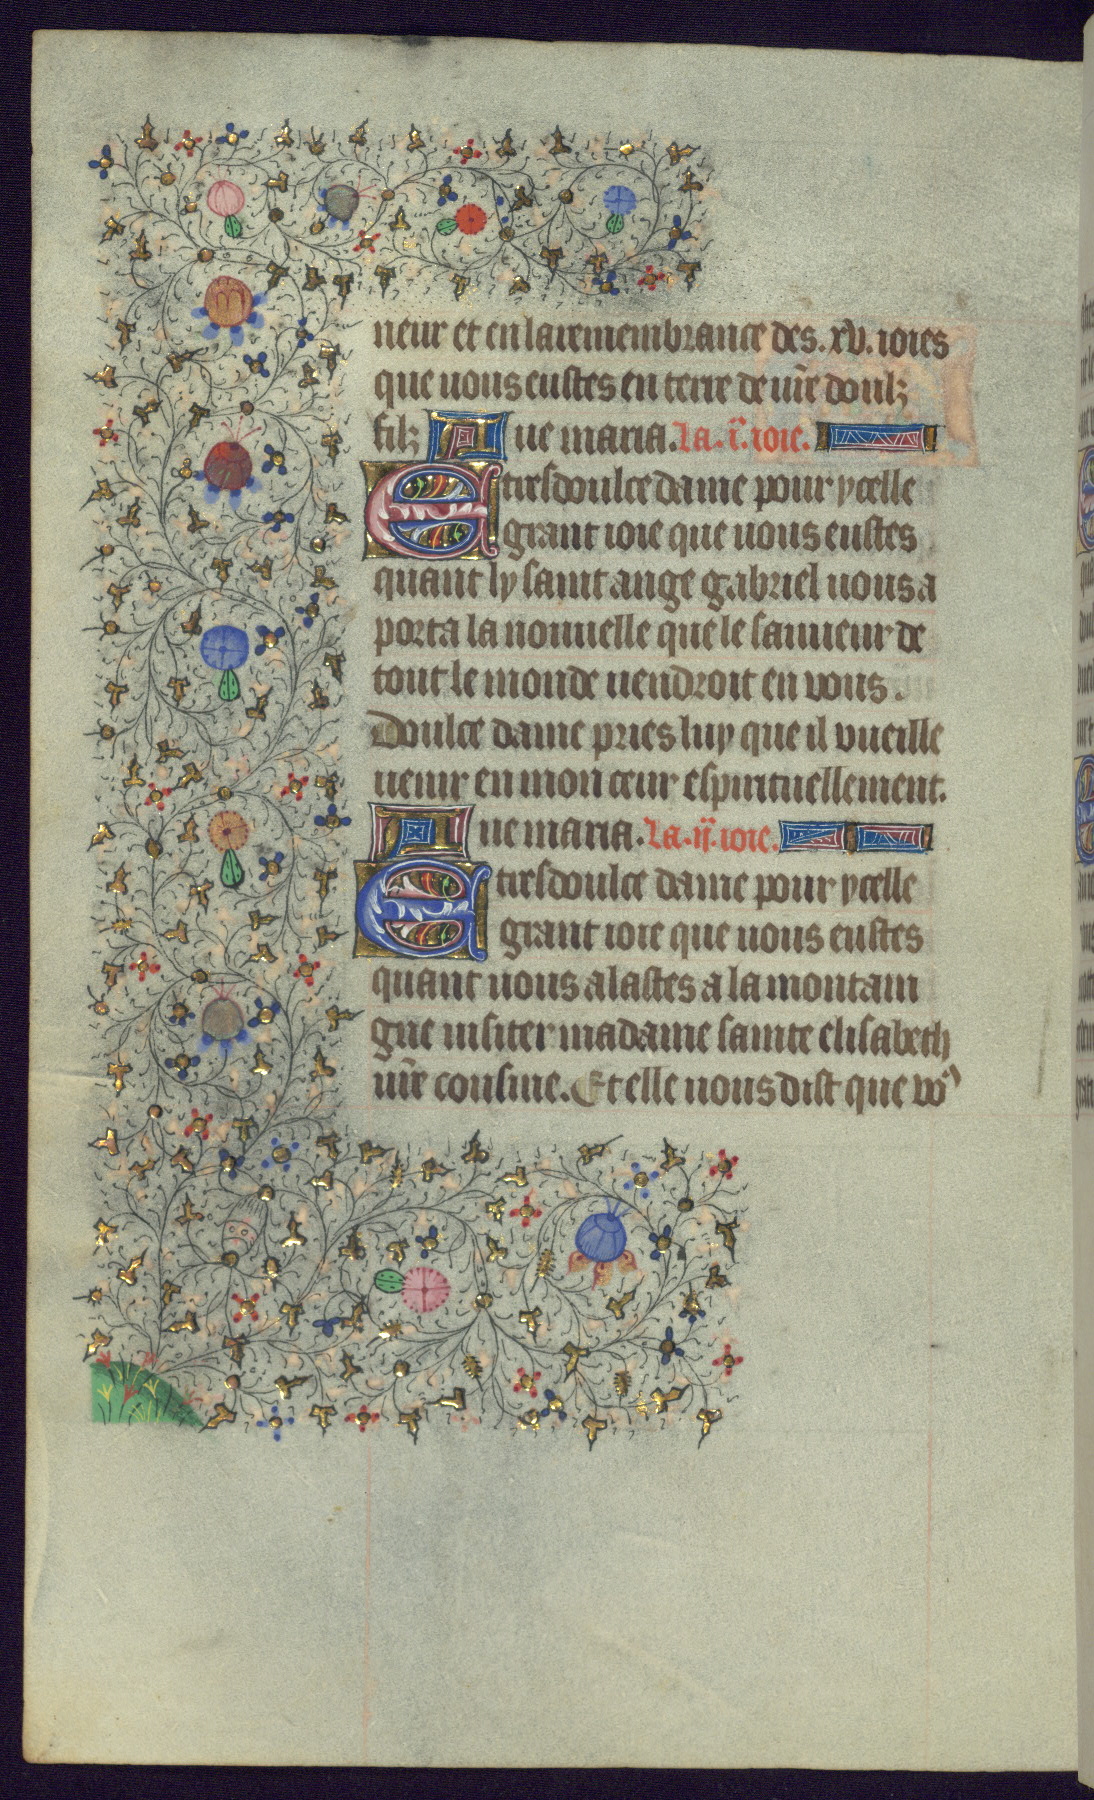 neur et en la remembrance des .xv. ioies
que uous eustes en terre de ur̃e doulz
filz Aue maria. La .i.̃ ioie.
E tresdoulce dame pour ycelle
grant ioie que uous eustes
quant ly saint ange gabriel uous a
porta la nouuelle que le sauueur de
tout le monde uendroit en vous.
Doulce dame pries luy que il vueille
uenir en mon cœur espirituellement.
Aue maria. La .ij.̃ ioie.
E tresdoulce dame pour ycelle
grant ioie que uous eustes
quant uous alastes a la montain
gne uisiter madame sainte elisabeth
ur̃e cousine. Et elle uous dist que vo⁹